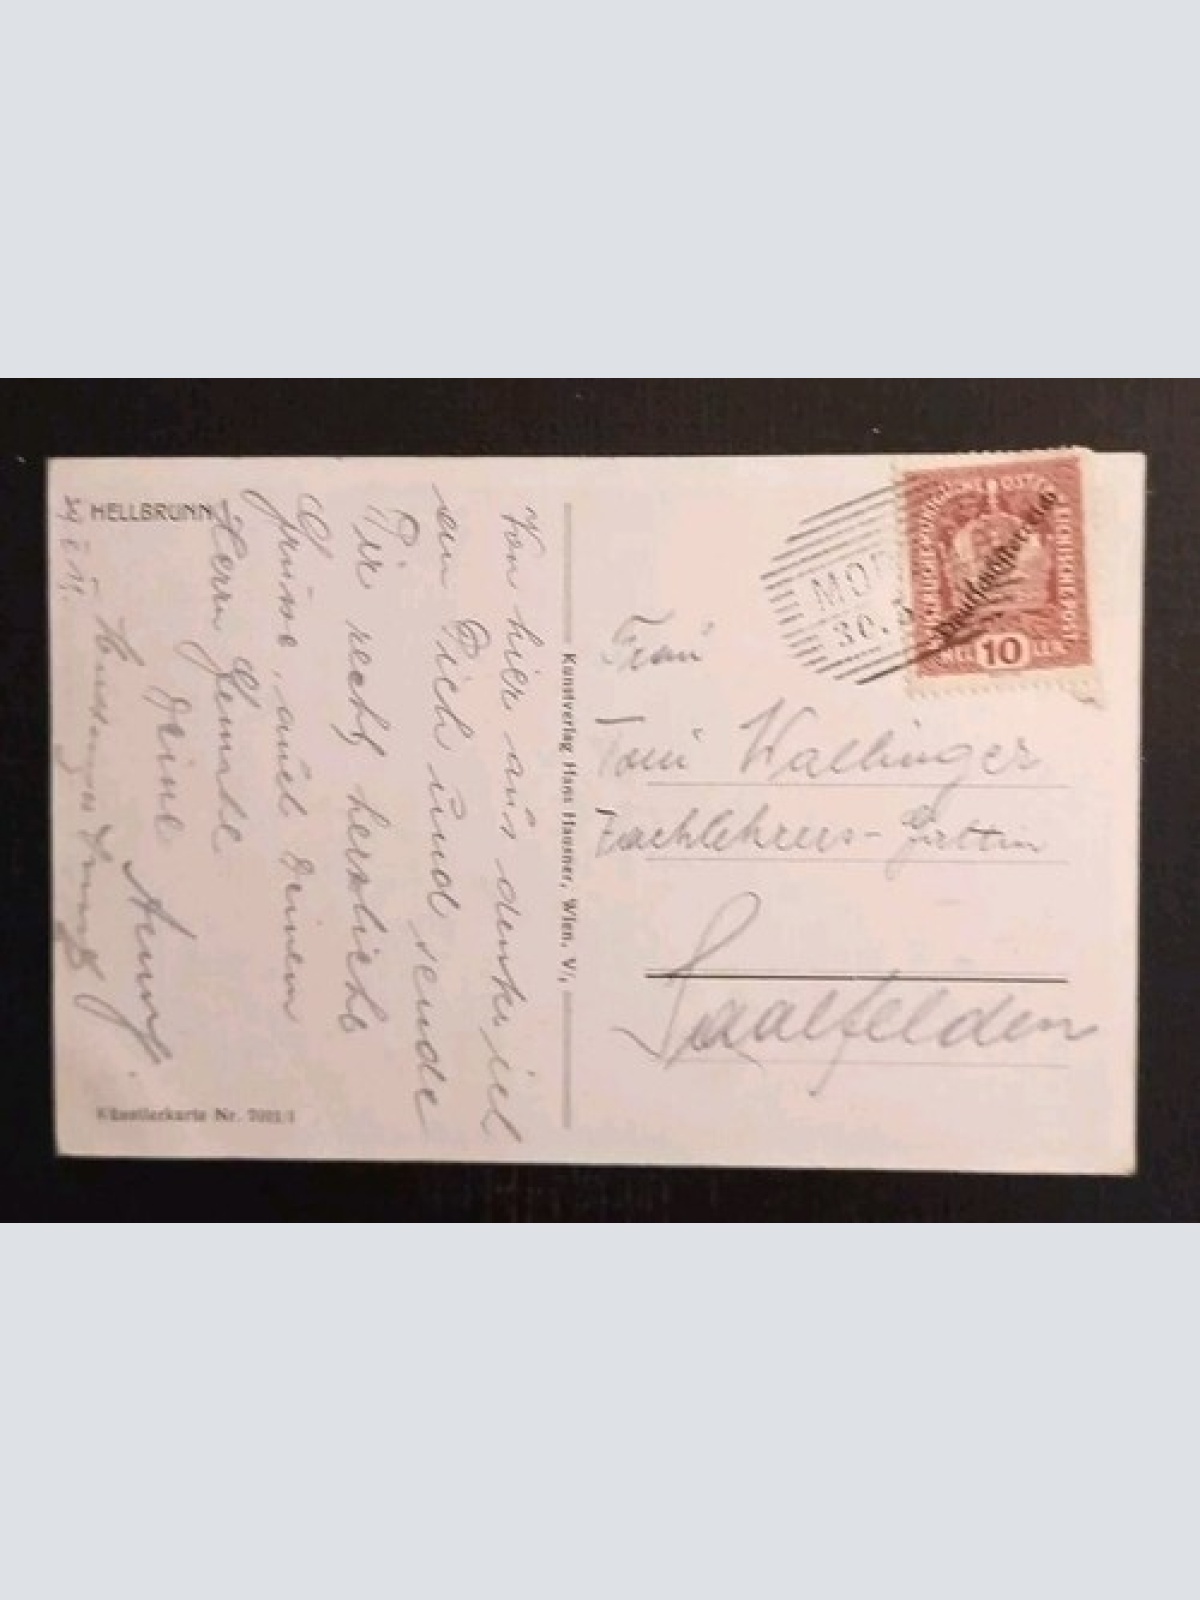 HELLBRUNN
Von hier aus denke ich
an Dich und sende
Dir recht herzliche
Grüsse, auch Deinem
Herrn Gemahl
Deine
Künstlerkarte Nr. 7022/1
Kunstverlag Hans Hausner, Wien, V/,
ÖSTERREICHISCHE POST
Deutschösterreich
HELLER
10
MO
30.
Frau
Toni Wallinger
Fachlehrers-Gattin
Saalfelden